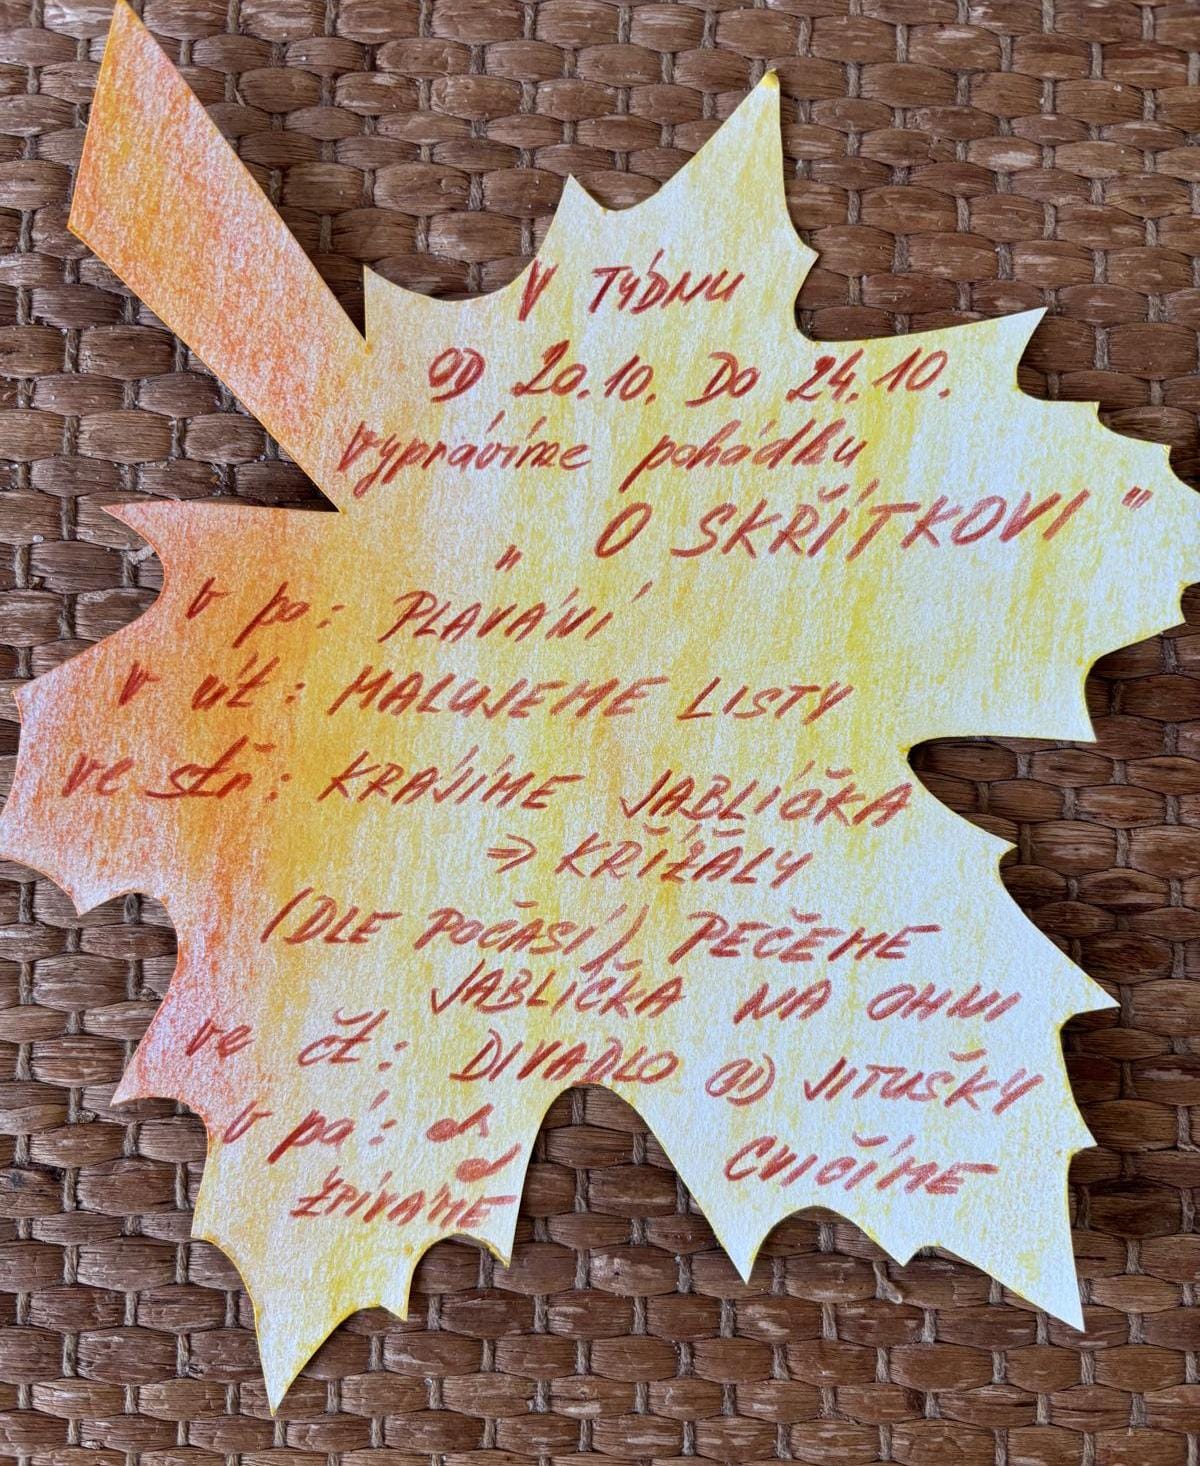 V TÝDNU
OD 20.10. DO 24.10.
vyprávíme pohádku
" O SKŘÍTKOVI "
v po: PLAVÁNÍ
v út: MALUJEME LISTY
ve stř: KRÁJÍME JABLÍČKA
⇒ KŘÍŽALY
(DLE POČASÍ) PEČEME
JABLÍČKA NA OHNI
ve čt: DIVADLO OD JITUŠKY
v pá:
CVIČÍME
ZPÍVÁME